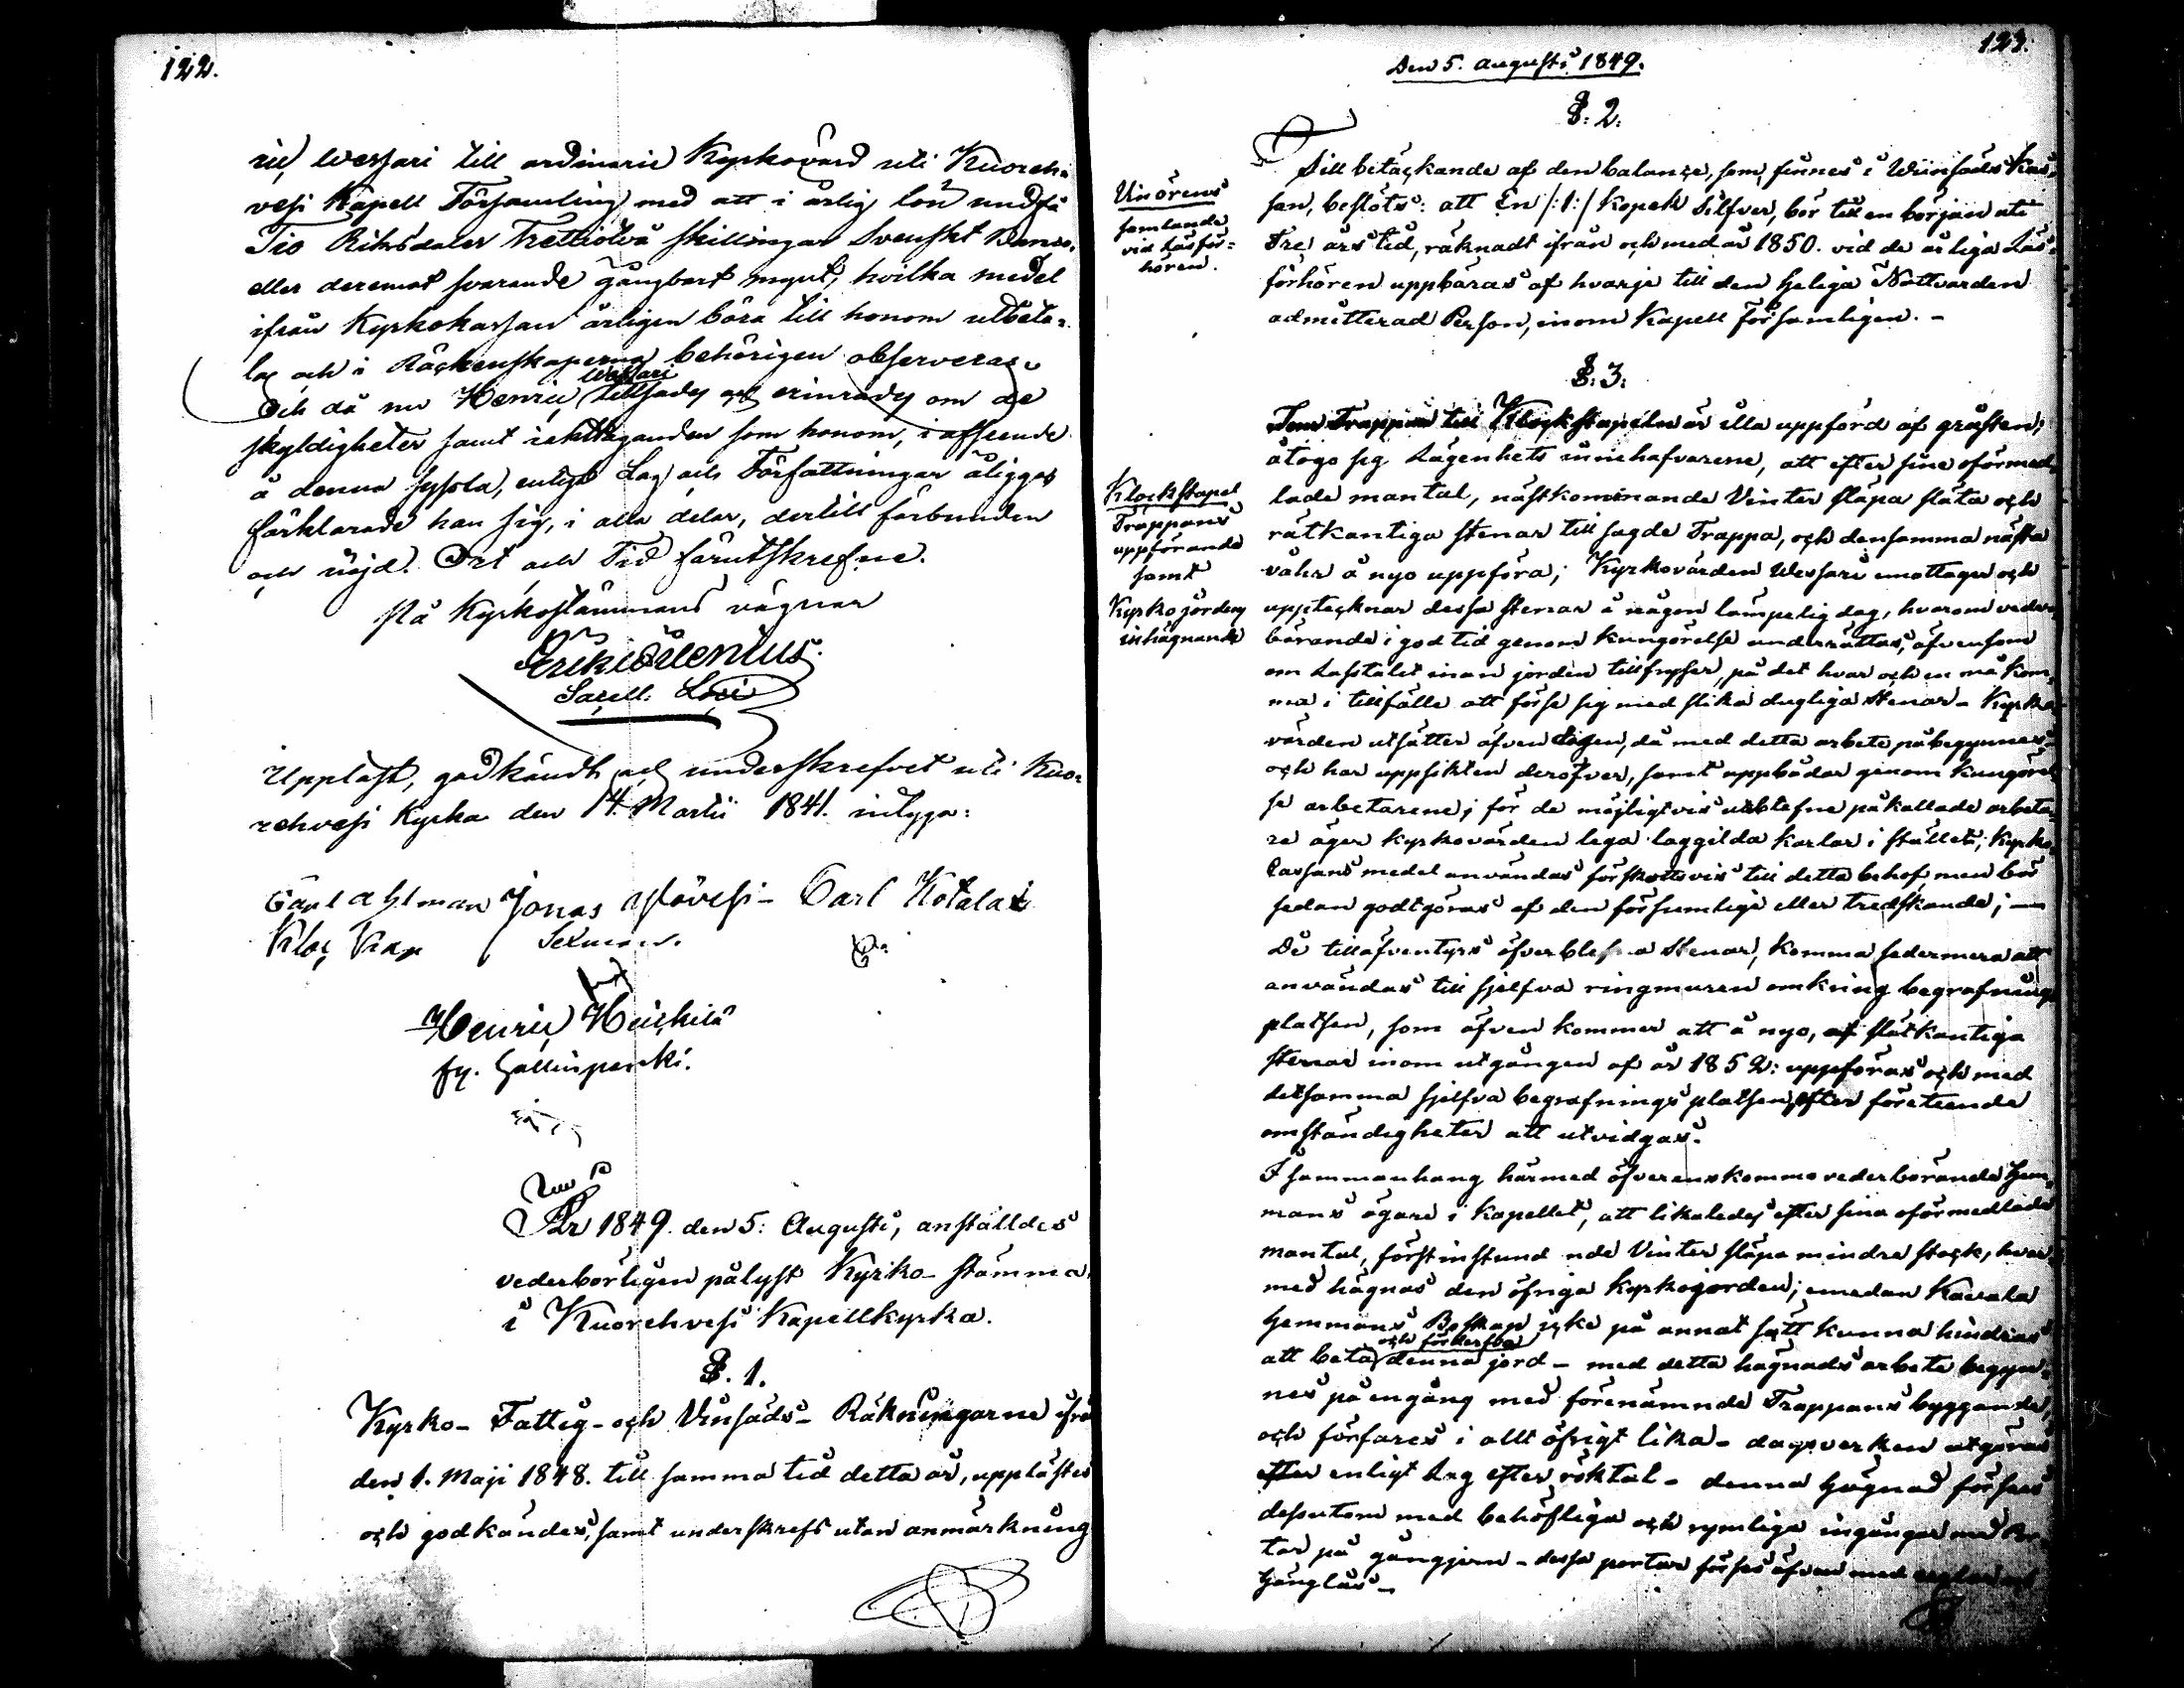 122.
ric Wessari till ordinarie Kyrkovärd uti Kuoreh-
vesi Kapell Församling med att i årlig lön undfå
Tio Riksdaler Trettiotvå skillingar Svenskt Banco,
eller deremot svarande gångbart mynt, hvilka medel
ifrån Kyrkokassan årligen böra till honom utbeta-
las och i Räckenskaperna behörigen observeras.
Och då nu Henric Wessari tillsades och erinrades om de
skyldigheter samt iakttaganden som honom, i afseende
å denna syssla, enligt Lag och Författningar åligger
förklarade han sig, i alla delar, dertill förbunden
och nöjd. Ort och Tid förutskrefne.
På Kyrkostämmans vägnar
Sacell. Loci
Uppläst, godkändt och underskrefvet uti Kuo-
rehvesi Kyrka den 14. Martii 1841. intyga:
Carl Ahlman Jonas Carl Kotala
Sexman.
Henric Heickilä
År 1849. den 5: Augusti, anställdes
vederbörligen pålyst Kyrko-stämma
i Kuorehvesi Kapellkyrka.
§. 1.
Kyrko- Fattig- och Vinsäds- Räkningarne ifrå
den 1. Maji 1848. till samma tid detta år, upplästes
och godkändes, samt underskrefs utan anmärkning
123.
Den 5. Augusti 1849.
§. 2.
Vinörens
samlande
vid Läsför=
hören.
Till betäckande af den balance, som finnes i Viinsäds Kas-
san, beslöts: att En /:1:/ Kopek Silfver, bör till en början uti
Tre års tid, räknadt ifrån och med år 1850. vid de årliga Läs-
förhören uppbäras af hvarje till den heliga Nattvarden
admitterad Person, inom Kapell församligen. -
§. 3.
Klockstapel
Trappans
uppförande
samt
Kyrkojordens
inhägnande
Som Trappan till Klockstapeln är illa uppförd af gråsten;
åtogo sig Lägenhets innehafvarene, att efter sine oförmed-
lade mantal, nästkommande Vinter släpa släta och
rätkantiga stenar till sagde Trappa, och densamma nästa
våhr å nyo uppföra; Kyrkovärden Wessari emottager och
upptecknar dessa stenar å någon lämpelig dag, hvarom veder-
börande i god tid genom kungörelse underrättas, äfvensom
om Lasstalet innan jorden tillfryser, på det hvar och en må kom-
ma i tillfälle att förse sig med slika dugliga stenar - Kyrko-
värden utsätter äfven dagen, då med detta arbete påbegynnes
och har uppsikten deröfver, samt uppbådar genom kungörel-
se arbetarene; för de möjligtvis uteblefne påkallade arbeta-
re äger kyrkovärden lega laggilda karlar i stället; Kyrko-
Cassans medel användas förskottsvis till detta behof, men bör
sedan godtgöras af den försumlige eller tredskande; -
De tilläfventyrs öfverblefna stenar, komma sedermera att
användas till sjelfva ringmuren omkring begrafnings
platsen, som äfven kommer att å nyo, af slätkantiga
stenar inom utgången af år 1852: uppföras och med
detsamma sjelfva begrafnings platsen, efter företeende
omständigheter att utvidgas.
I sammanhang härmed öfverenskommo vederbörande Hem-
mans ägare i Kapellet, att likaledes efter sina oförmedlade
mantal, förstinstundande Vinter släpa mindre stock, hvar-
med hägnas den öfriga kyrkojorden; emedan Kauala
Hemmans Boskap icke på annat sätt kunna hindras
att beta och förderfva denna jord - med detta hägnads arbete begyn-
nes på engång med förenämnde Trappans byggande,
och förfares i allt öfrigt lika - dagsverken utgöras
efter enligt Lag efter röktal - denna Hägnad förses
dessutom med behöfliga och rymliga ingångar med Por-
tar på gångjern - dessa portar förses äfven med
Hänglås -